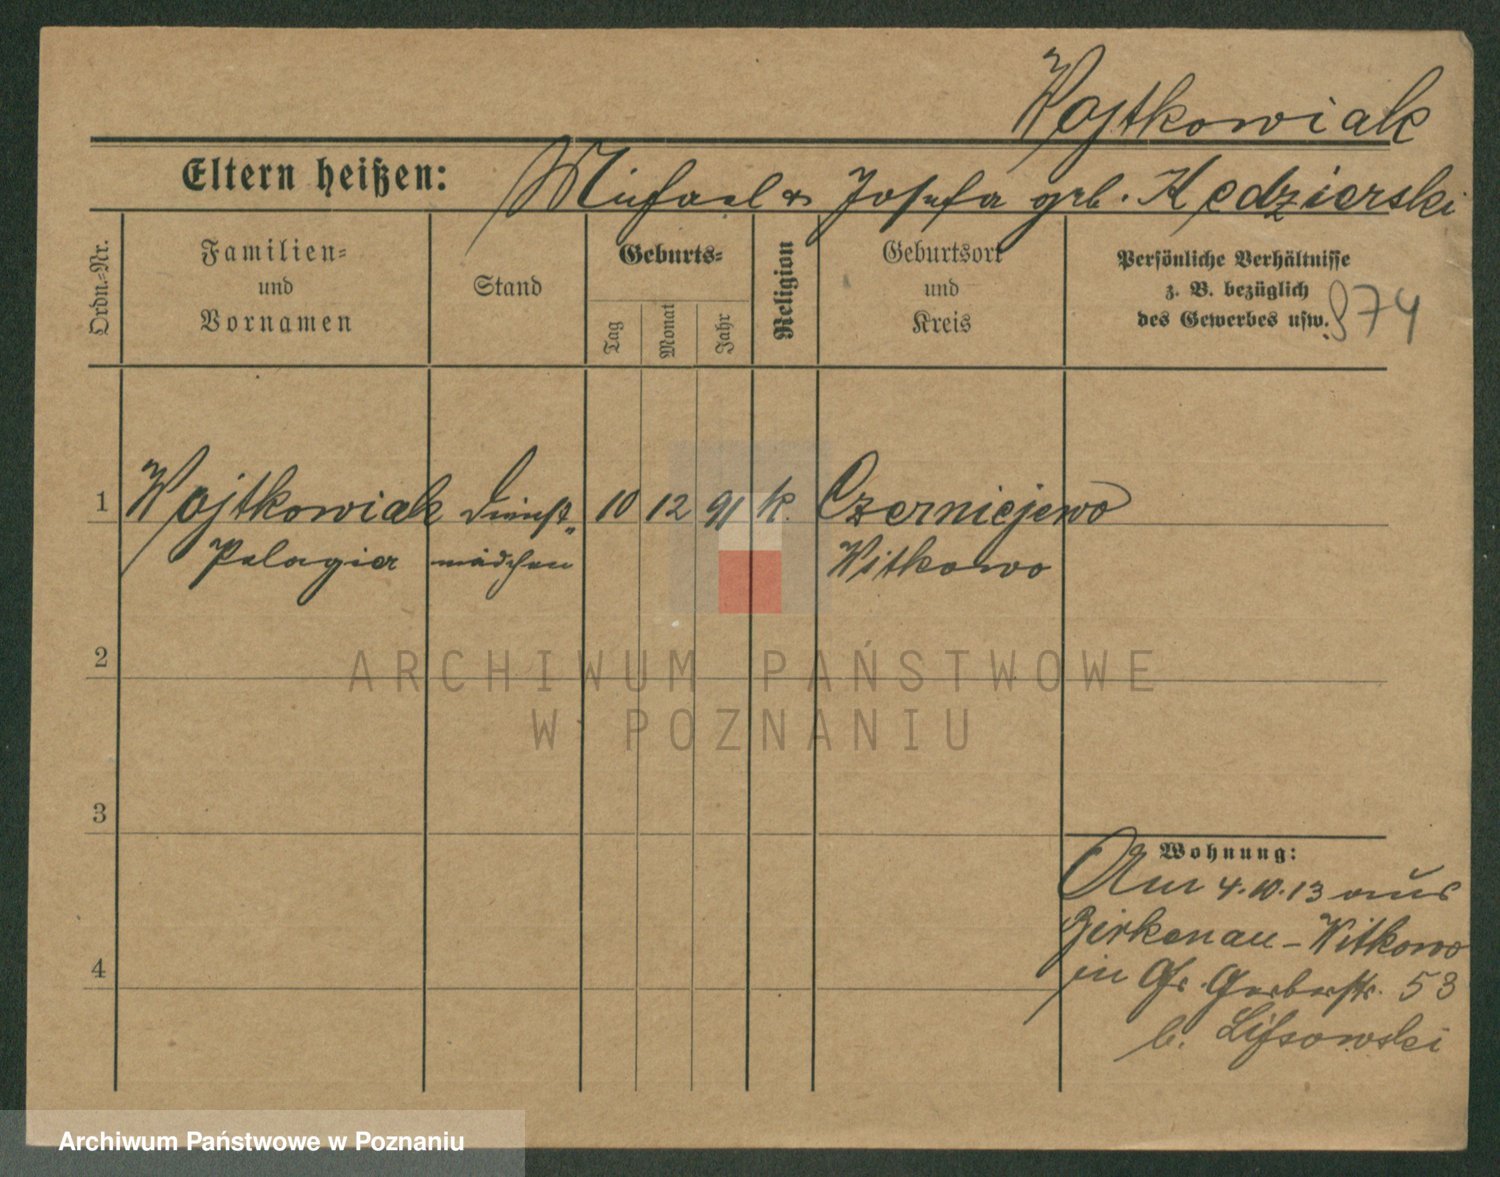 Wojtkowiak
Eltern heißen: Michael & Josefa geb. Kędzierski
Ordn.-Nr.
Familien-
und
Vornamen
Stand
Geburts-
Tag
Monat
Jahr
Religion
Geburtsort
und
Kreis
Persönliche Verhältnisse
z. B. bezüglich
des Gewerbes usw.
974
1 Wojtkowiak Dienst- 10 12 91 k. Czerniejewo
Pelagia mädchen Witkowo
2
ARCHIWUM PAŃSTWOWE
W POZNANIU
3
Wohnung:
Am 4.10.13 aus
Birkenau - Witkowo
4
in Gr. Gerberstr. 53
b.
Archiwum Państwowe w Poznaniu